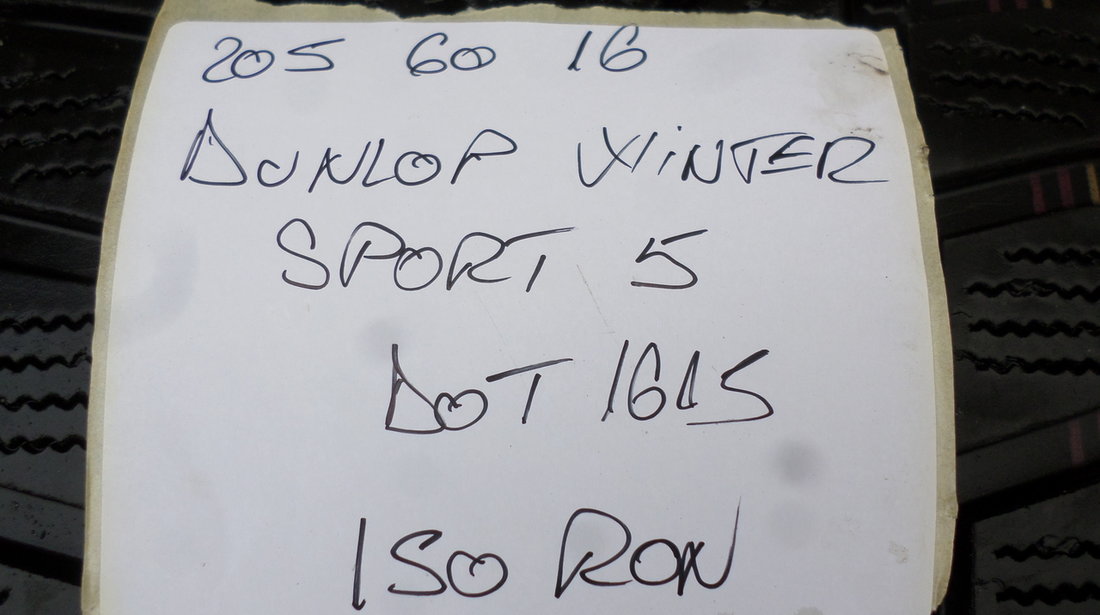 205 60 16
DUNLOP WiNTER
SPORT 5
DOT 1615
150 RON